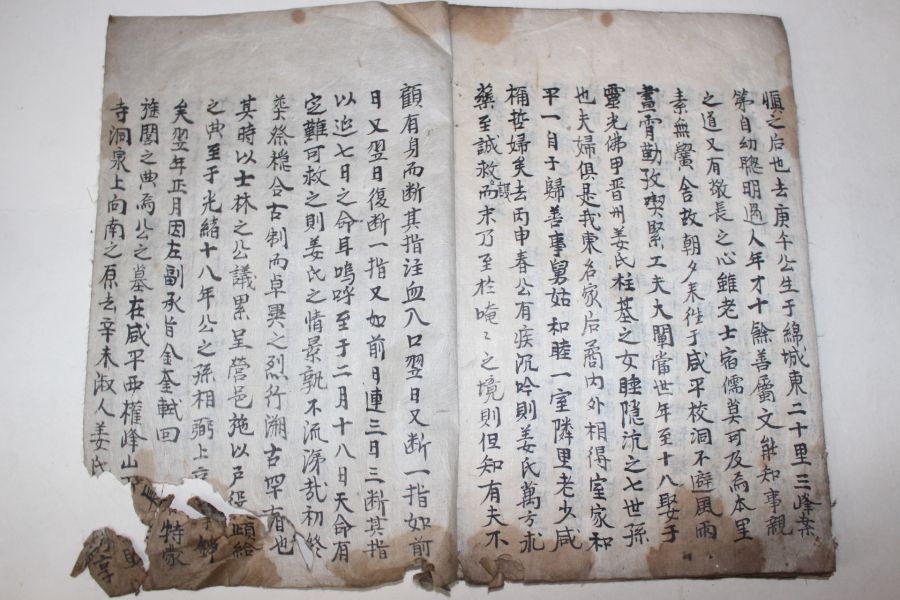 愼之后也去庚午公生于綿城東二十里三峰菴
第自幼聰明過人年才十餘善屬文能知事親
之道又有敬長之心雖老士宿儒莫可及焉本里
素無黌舍故朝夕來往于咸平校洞不避風雨
晝宵勤孜喫緊工夫大闡當世年至十八娶于
靈光佛甲晋州姜氏柱基之女睡隱沆之七世孫
也夫婦俱是我東名家后裔內外相得室家和
平一自于歸善事舅姑和睦一室隣里老少咸
稱哲婦矣去丙申春公有疾沉吟則姜氏萬方求
藥至誠救護而末乃至於唵〻之境則但知有夫不
顧有身而断其指注血入口翌日又断一指如前
日又翌日復断一指又如前日連三日三断其指
以延七日之命耳嗚呼至于二月十八日天命有
定難可救之則姜氏之情景孰不流涕哉初終
葬祭稳合古制而卓異之烈行溯古罕有也
其時以士林之公議累呈營邑施以戶役頉給
之典至于光緖十八年公之孫相弼上京
矣翌年正月因左副承旨金奎軾回 特蒙
旌閭之典焉公之墓在咸平西權峰山
寺洞泉上向南之原去辛未淑人姜氏